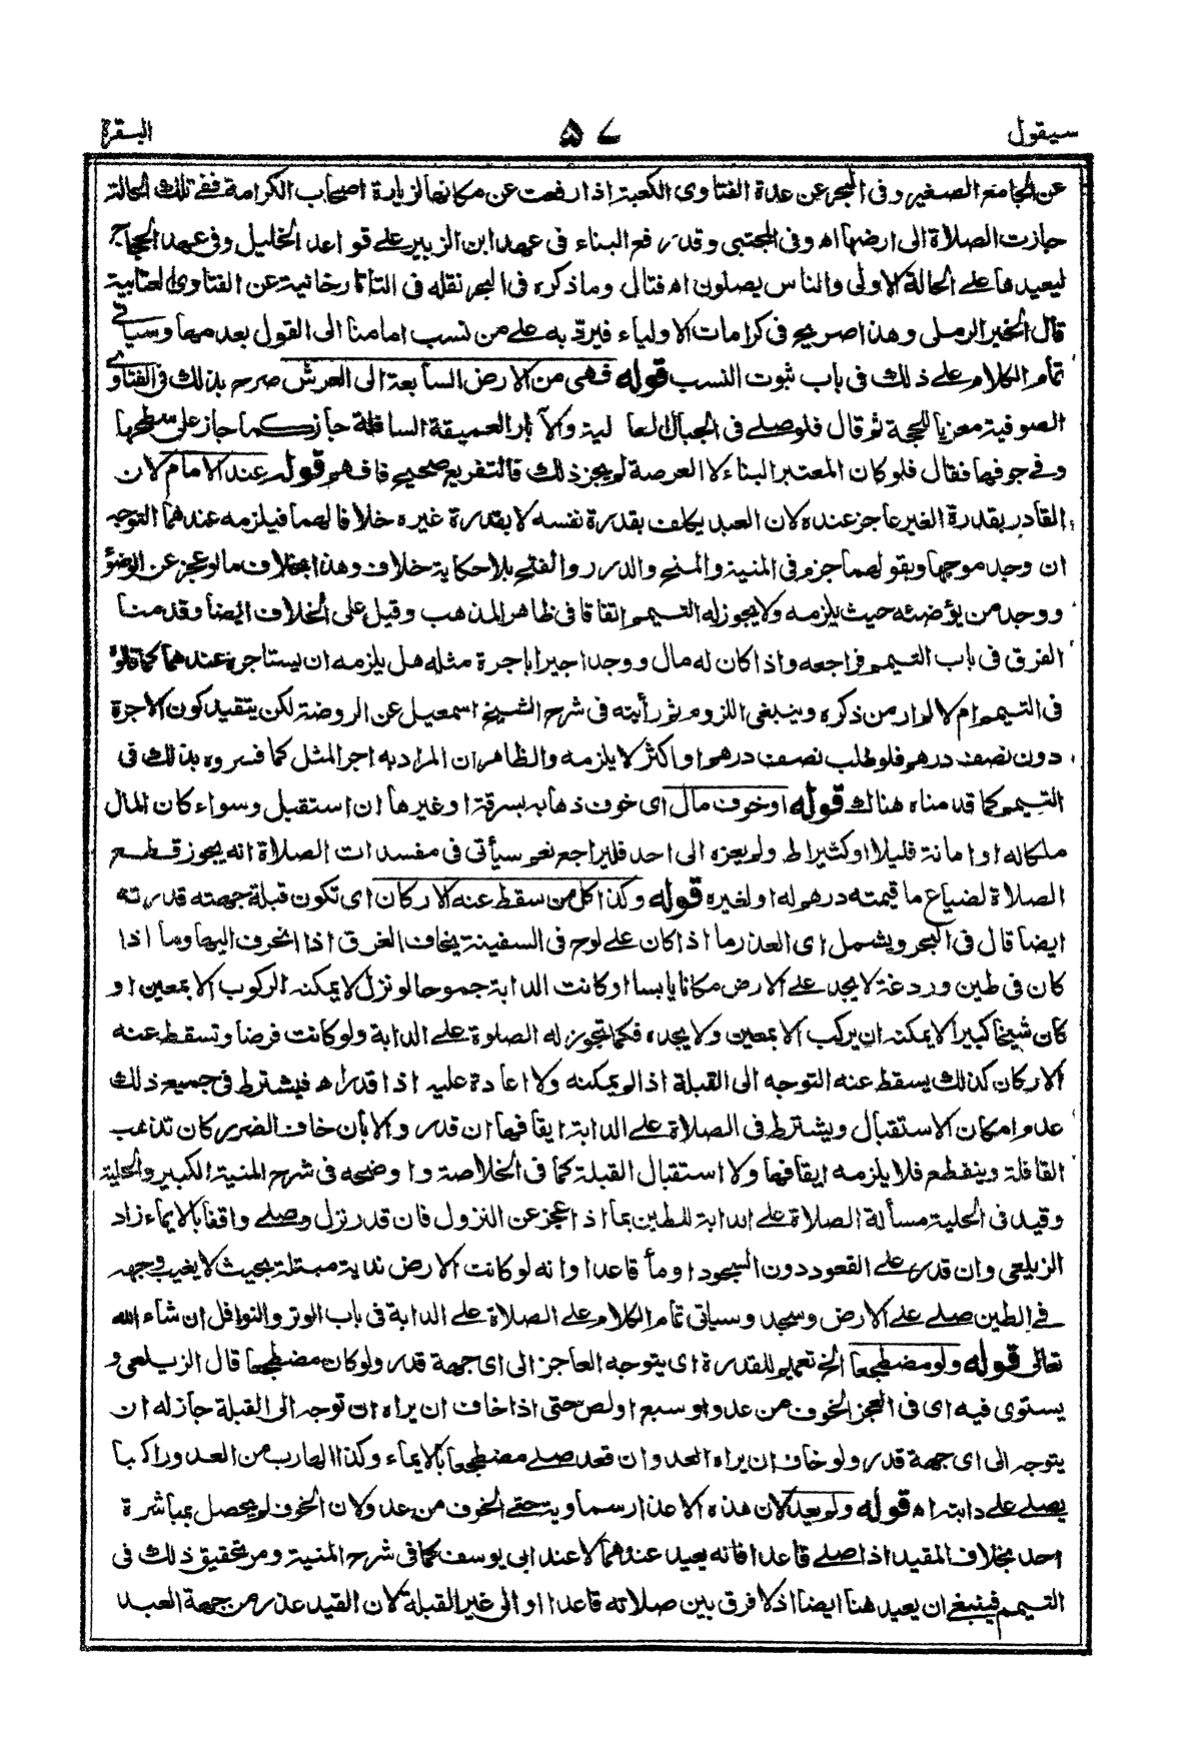 سيقول ٥٧ البقرة
عن الجامع الصغير وفى البحر عن عدة الفتاوى الكعبة اذا رفعت عن مكانها لزيارة اصحاب الكرامة ففى تلك الحالة
جازت الصلاة الى ارضها اه وفى المجتبى وقد رفع البناء فى عهد ابن الزبير على قواعد الخليل وفى عهد الحجاج
ليعيدها على الحالة الاولى والناس يصلون اه فتال وما ذكره فى البحر نقله فى التاتارخانية عن الفتاوى العتابية
قال الخير الرملى وهذا صريح فى كرامات الاولياء فيرد به على من نسب امامنا الى القول بعدمها وسياتى
تمام الكلام على ذلك فى باب ثبوت النسب قوله فهى من الارض السابعة الى العرش صرح بذلك فى الفتاوى
الصوفية معزيا للحجة ثم قال فلو صلى فى الجبال العالية والآبار العميقة السافلة جاز كما جاز على سطحها
وفى جوفها فقال فلو كان المعتبر البناء لا العرصة لم يجز ذلك فالتفريع صحيح فافهم قوله عند الامام لان
القادر بقدرة الغير عاجز عنده لان العبد يكلف بقدرة نفسه لا بقدرة غيره خلافا لهما فيلزمه عندهما التوجه
ان وجد موجها وبقولهما جزم فى المنية والمنح والدرر والفتح بلا حكاية خلاف وهذا بخلاف ما لو عجز عن الوضؤ
ووجد من يؤضئه حيث يلزمه ولا يجوز له التيمم اتفاقا فى ظاهر المذهب وقيل على الخلاف ايضا وقدمنا
الفرق فى باب التيمم فراجعه واذا كان له مال ووجد اجيرا باجرة مثله هل يلزمه ان يستاجره عندهما كما قالوا
فى التيمم ام لا لم ار من ذكره وينبغى اللزوم ثم رأيته فى شرح الشيخ اسمعيل عن الروضة لكن بتقييد كون الاجرة
دون نصف درهم فلو طلب نصف درهم او اكثر لا يلزمه والظاهر ان المراد به اجر المثل كما فسروه بذلك فى
التيمم كما قدمناه هناك قوله او خوف مال اى خوف ذهابه بسرقة او غيرها ان استقبل وسواء كان المال
ملكا له او امانة قليلا او كثيرا ط ولم يعزه الى احد فليراجع نعم سيأتى فى مفسدات الصلاة انه يجوز قطع
الصلاة لضياع ما قيمته درهم له او لغيره قوله وكذا كل من سقط عنه الاركان اى تكون قبلة جهته قدرته
ايضا قال فى البحر ويشمل اى العذر ما اذا كان على لوح فى السفينة يخاف الغرق اذا انحرف اليها وما اذا
كان فى طين وردغة لا يجد على الارض مكانا يابسا او كانت الدابة جموحا لو نزل لا يمكنه الركوب الا بمعين او
كان شيخا كبيرا لا يمكنه ان يركب الا بمعين ولا يجده فكما تجوز له الصلوة على الدابة ولو كانت فرضا وتسقط عنه
الاركان كذلك يسقط عنه التوجه الى القبلة اذا لم يمكنه ولا اعادة عليه اذا قدر اه فيشترط فى جميع ذلك
عدم امكان الاستقبال ويشترط فى الصلاة على الدابة ايقافها ان قدر والا بأن خاف الضرر كان تذهب
القافلة وينقطع فلا يلزمه ايقافها ولا استقبال القبلة كما فى الخلاصة واوضحه فى شرح المنية الكبير والحلية
وقيد فى الحلية مسألة الصلاة على الدابة للطين بما اذا عجز عن النزول فان قدر نزل وصلى واقفا بالايماء زاد
الزيلعى وان قدر على القعود دون السجود اومأ قاعدا وانه لو كانت الارض ندية مبتلة بحيث لا يغيب وجهه
فى الطين صلى على الارض وسجد وسياتى تمام الكلام على الصلاة على الدابة فى باب الوتر والنوافل ان شاء الله
تعالى قوله ولو مضطجعا الخ تعميم للقدرة اى يتوجه العاجز الى اى جهة قدر ولو كان مضطجعا قال الزيلعى و
يستوى فيه اى فى العجز الخوف من عدو او سبع او لص حتى اذا خاف ان يراه ان توجه الى القبلة جاز له ان
يتوجه الى اى جهة قدر ولو خاف ان يراه العدو ان قعد صلى مضطجعا بالايماء وكذا الهارب من العدو راكبا
يصلى على دابته اه قوله ولم يعد لان هذه الاعذار سماوية حتى الخوف من عدو لان الخوف لم يحصل بمباشرة
احد بخلاف المقيد اذا صلى قاعدا فانه يعيد عندهما لا عند ابى يوسف كما فى شرح المنية ومر تحقيق ذلك فى
التيمم فينبغى ان يعيد هنا ايضا اذ لا فرق بين صلاته قاعدا او الى غير القبلة لان القيد عذر من جهة العبد